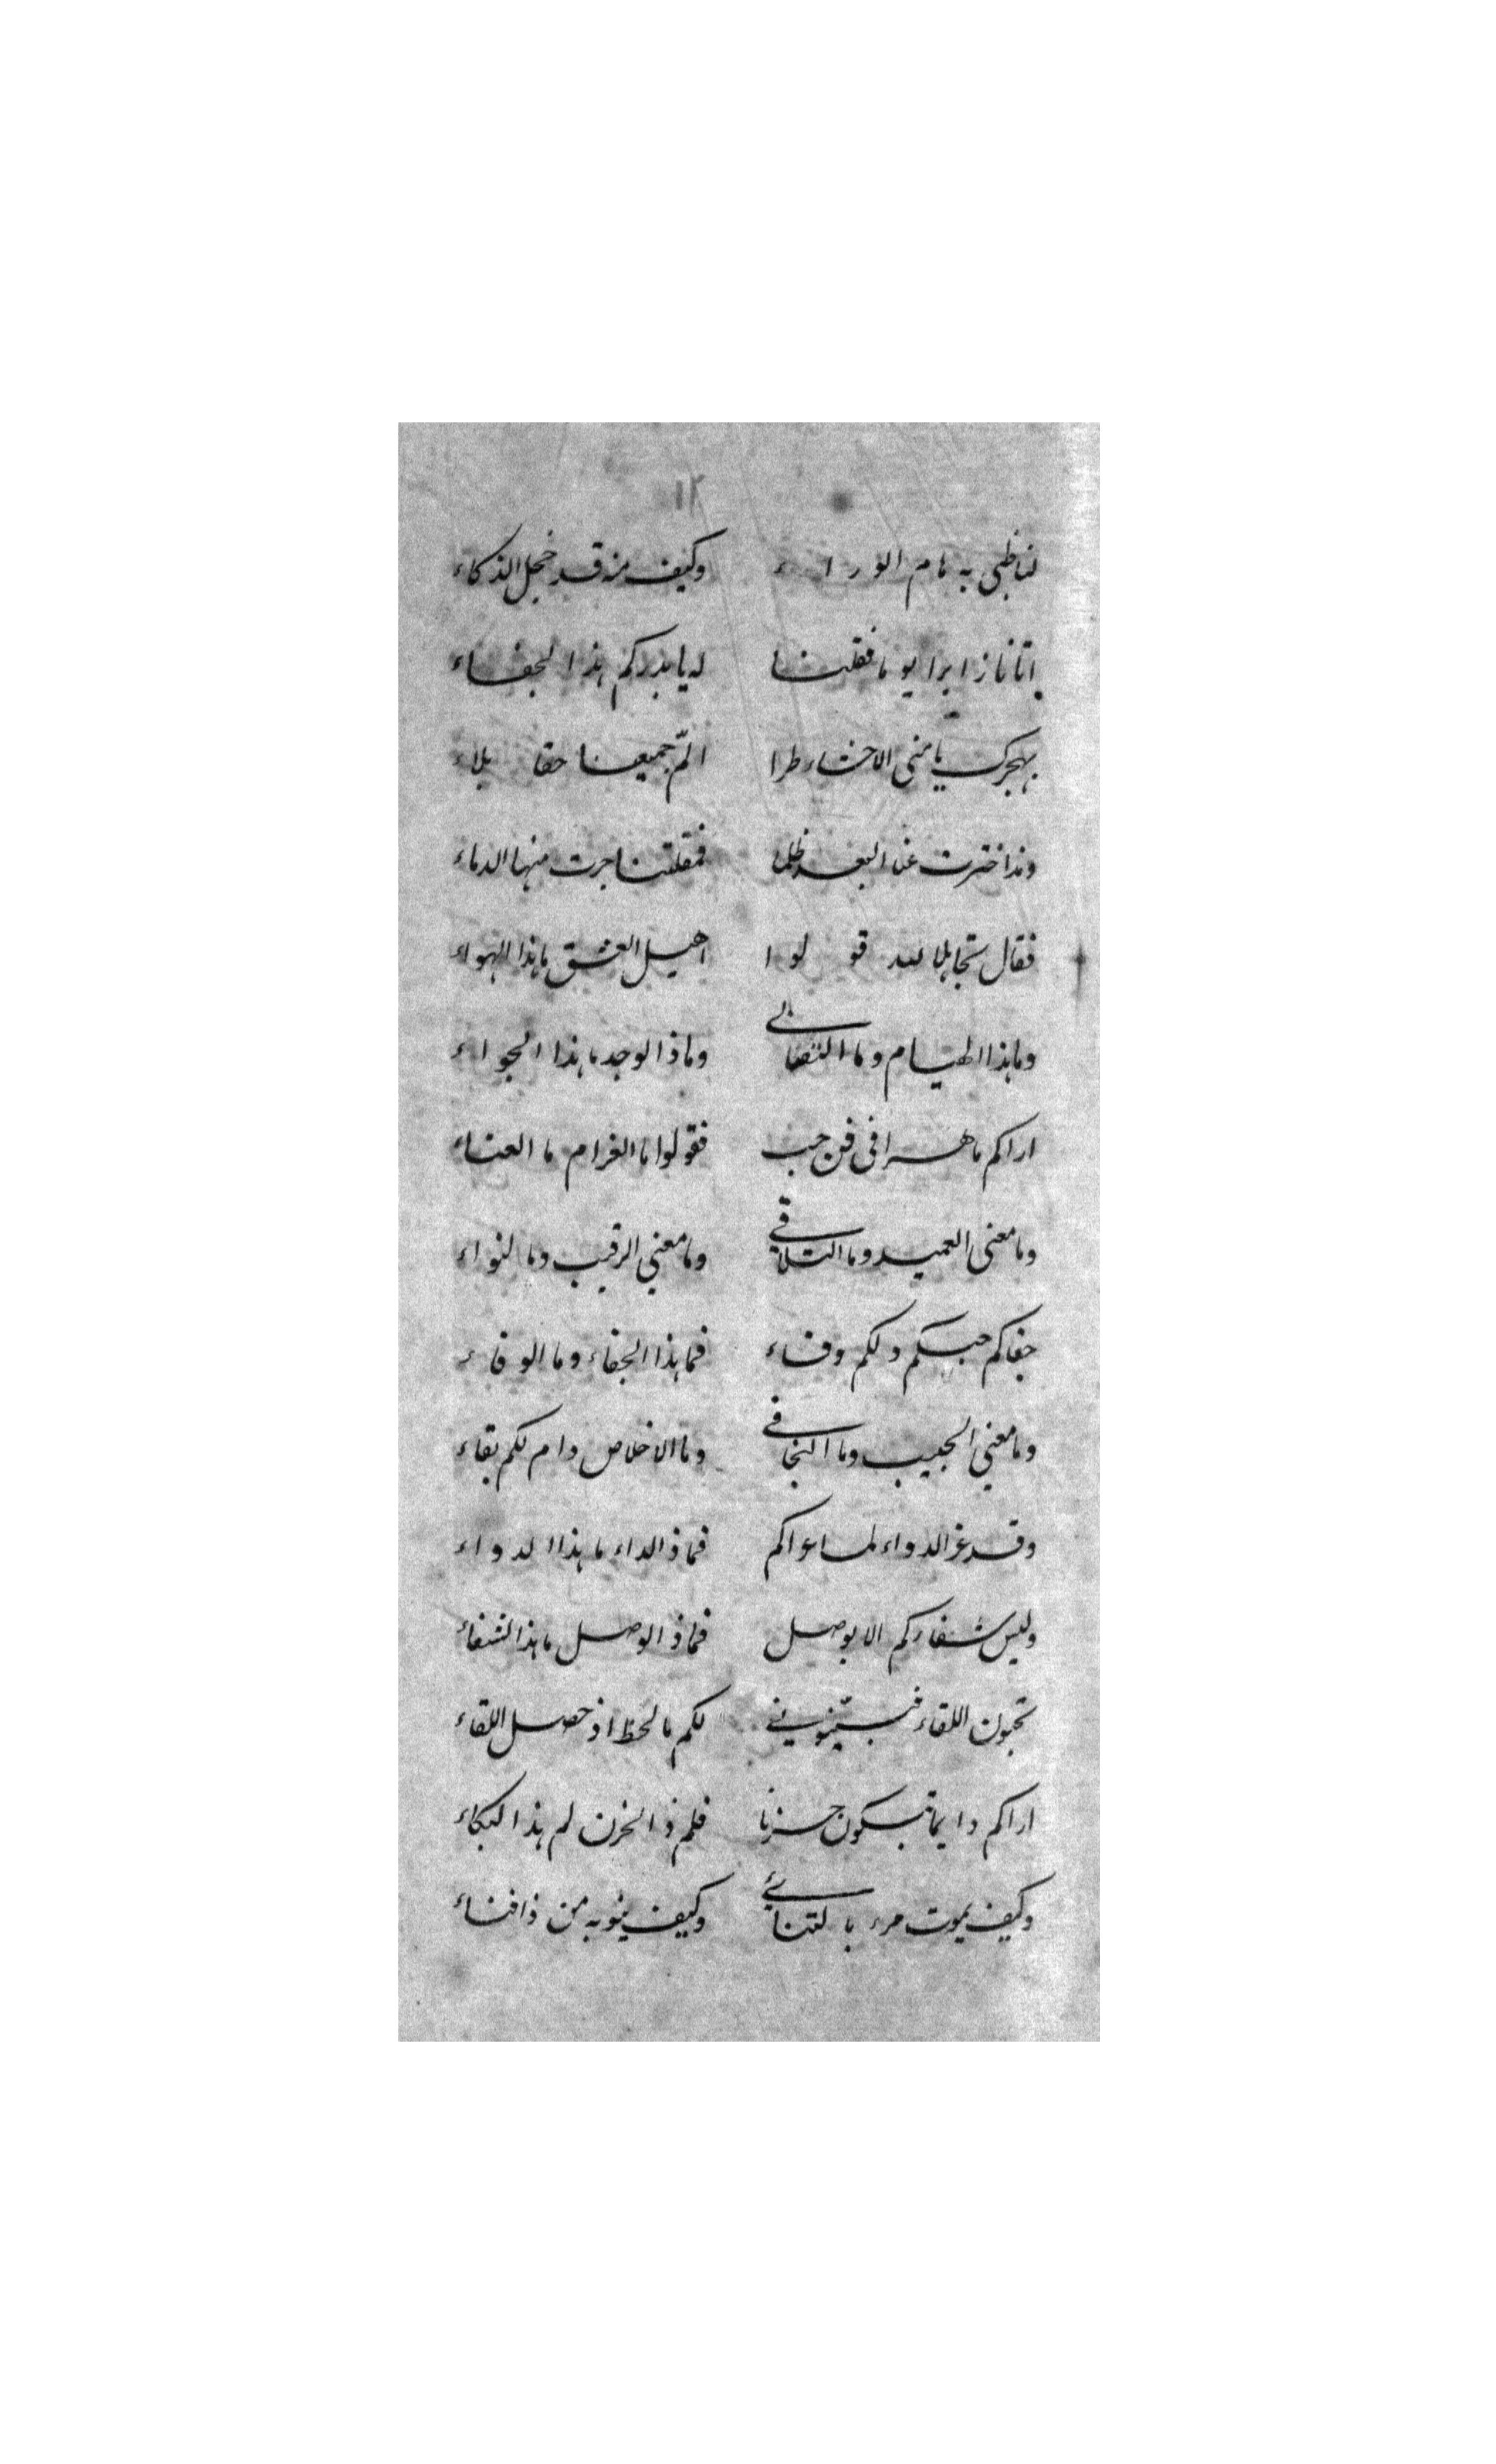 ١٢
لنا ظبي به هام الوراء وكيف من قد خجل الذكاء
اتانا زايرا يوما فقلنا له يا بدركم هذا الجفاء
بهجرك يا منى الاحشاء طرا الّم جميعنا حقا بلاء
ومذ اخترت عنا البعد ظلما فمقلتنا جرت منها الدماء
فقال تجاهلا لله قولوا اهيل العشق ما هذا الهواء
وما هذا الهيام وما التصابي وما ذا الوجد ما هذا الجواء
اراكم ماهرا في فن حب فقولوا ما الغرام ما العناء
وما معنى العميد وما التلاقي وما معني الرقيب وما النواء
جفاكم حبكم ولكم وفاء فما هذا الجفاء وما الوفاء
وما معني الحبيب وما التجافي وما الاخلاص دام لكم بقاء
وقد عز الدواء لما عراكم فما ذ الداء ما هذا الدواء
وليس شفاركم الا بوصل فما ذ الوصل ما هذا الشفاء
تحبون اللقاء فبيّنوني لكم ما لحظ اذ حصل اللقاء
اراكم دايما تبكون حزنا فلم ذ الحزن لم هذا البكاء
وكيف يموت مرء بالتنائي وكيف ينوبه من ذا فناء